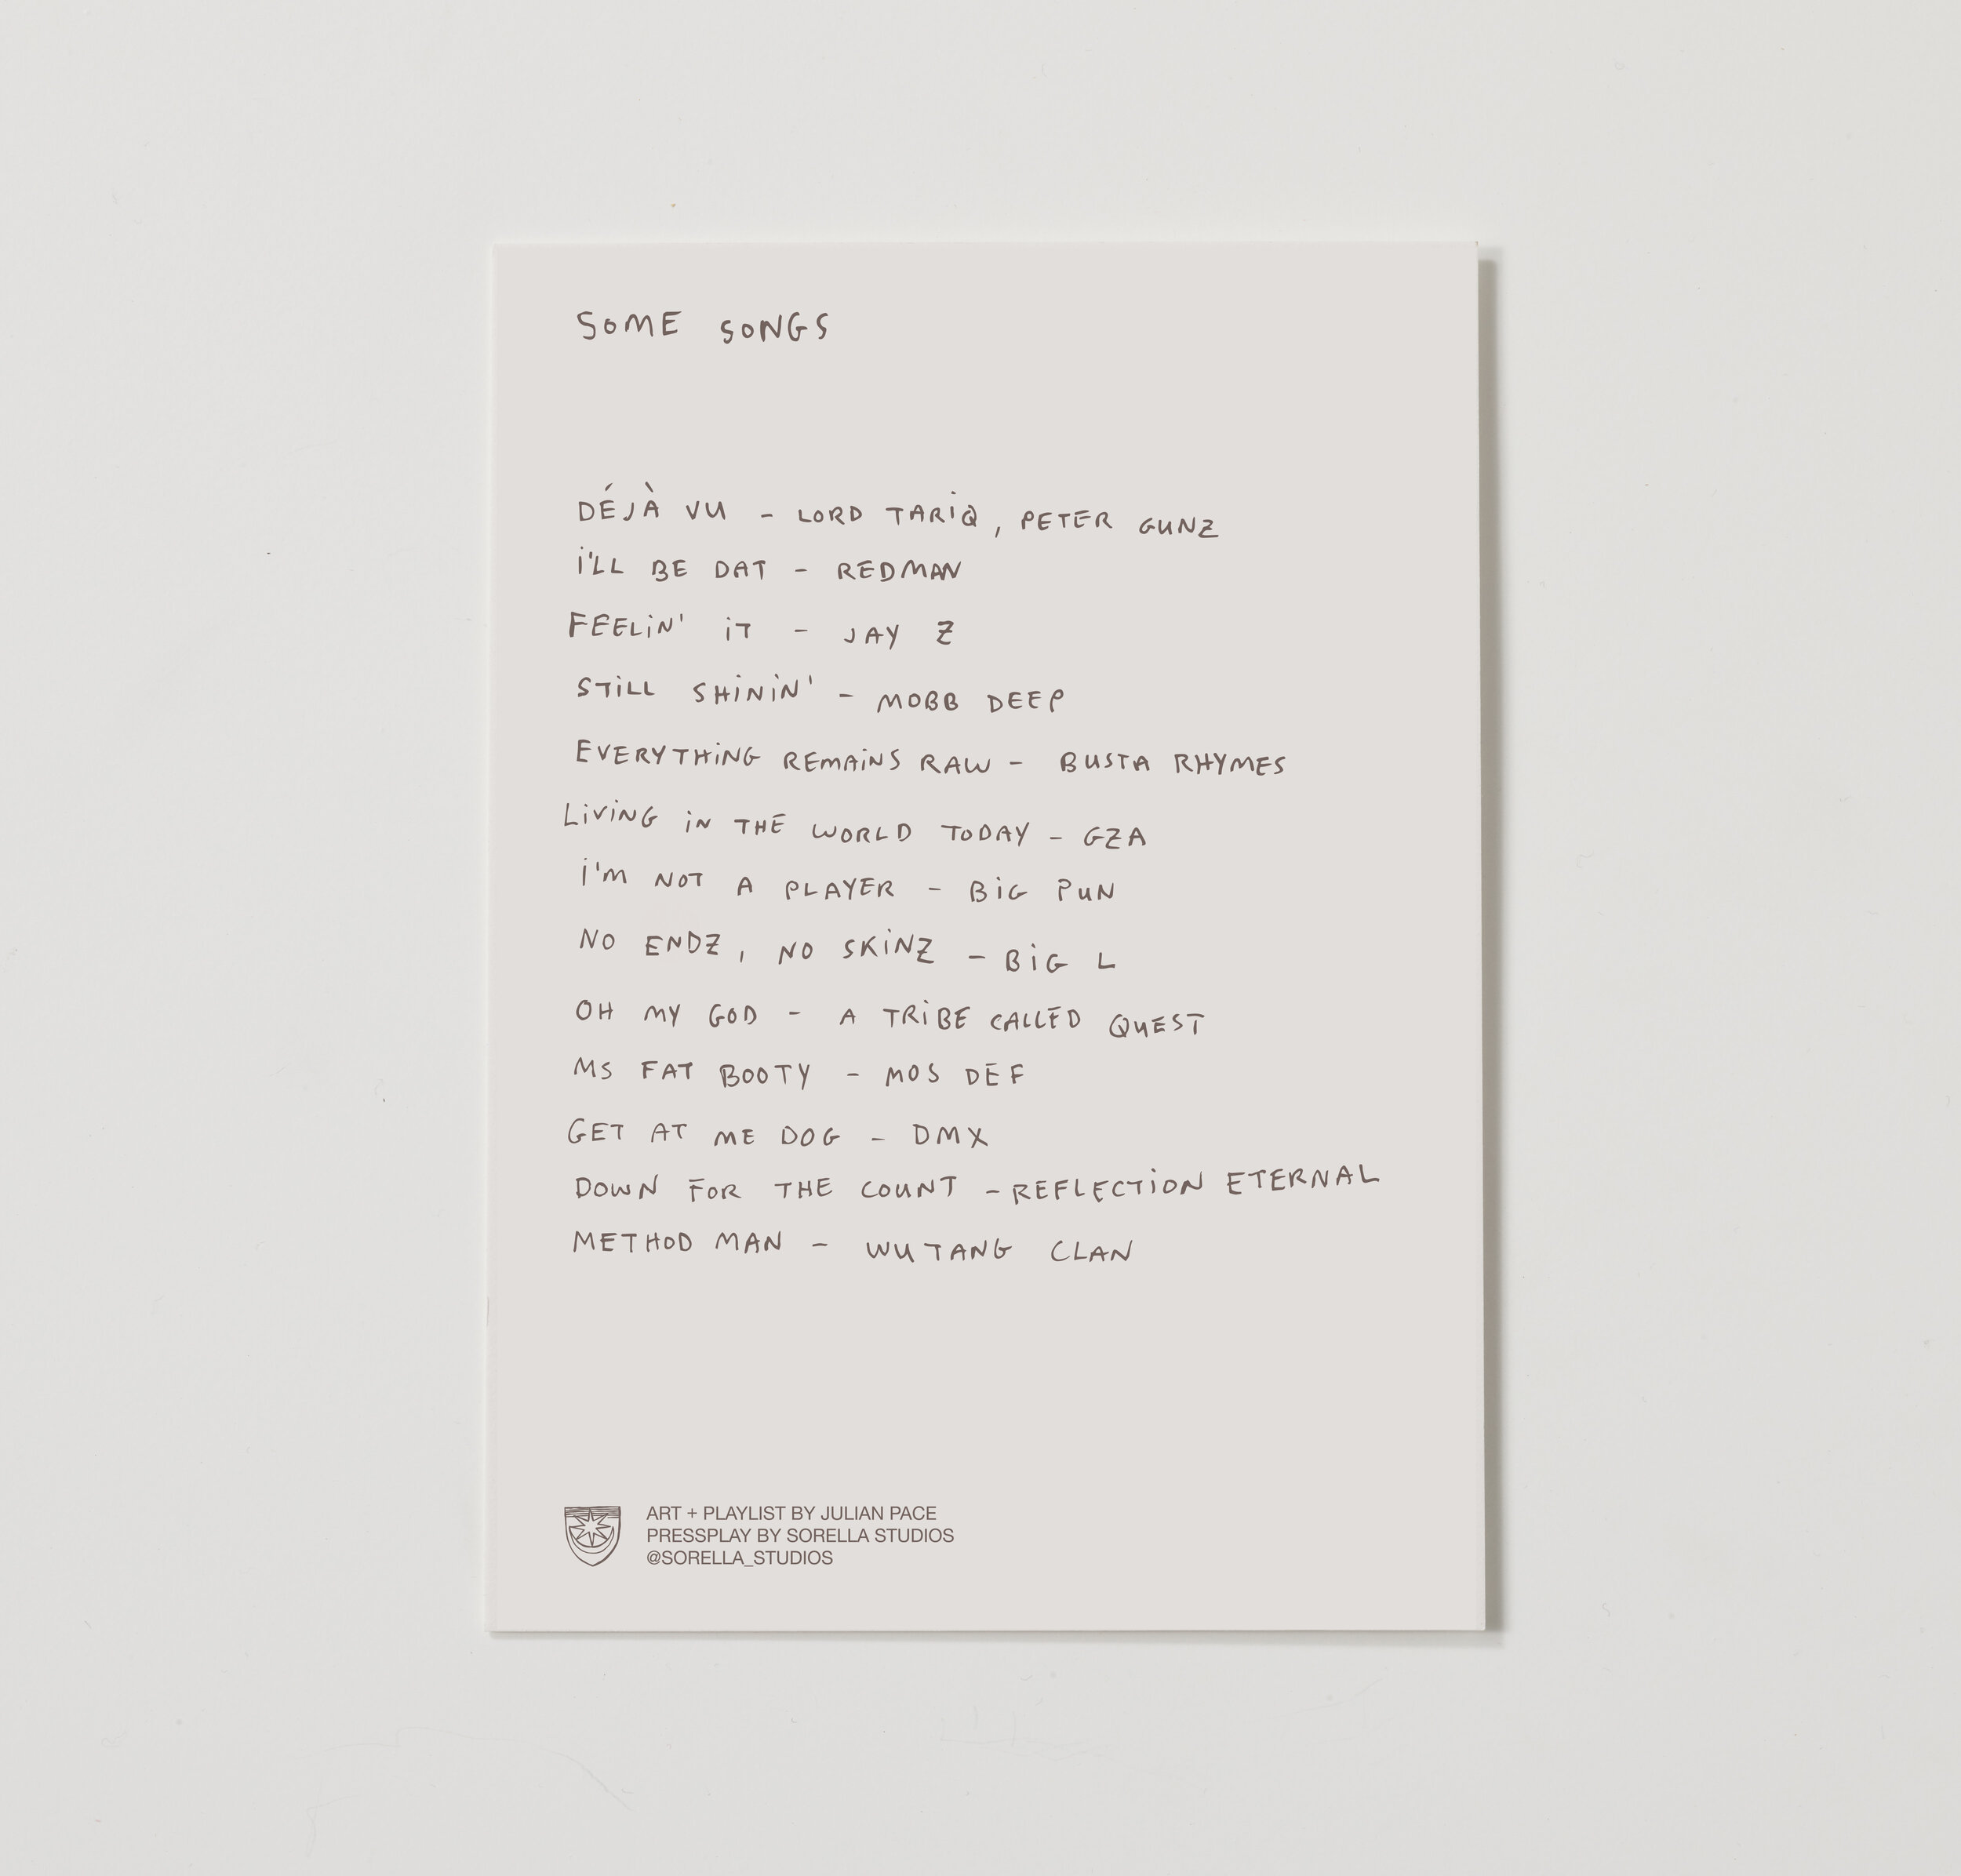 SOME SONGS
DÉJÀ VU - LORD TARIQ, PETER GUNZ
I'LL BE DAT - REDMAN
FEELIN' IT - JAY Z
STILL SHININ' - MOBB DEEP
EVERYTHING REMAINS RAW - BUSTA RHYMES
LIVING IN THE WORLD TODAY - GZA
I'M NOT A PLAYER - BIG PUN
NO ENDZ, NO SKINZ - BIG L
OH MY GOD - A TRIBE CALLED QUEST
MS FAT BOOTY - MOS DEF
GET AT ME DOG - DMX
DOWN FOR THE COUNT - REFLECTION ETERNAL
METHOD MAN - WU TANG CLAN
ART + PLAYLIST BY JULIAN PACE
PRESSPLAY BY SORELLA STUDIOS
@SORELLA_STUDIOS